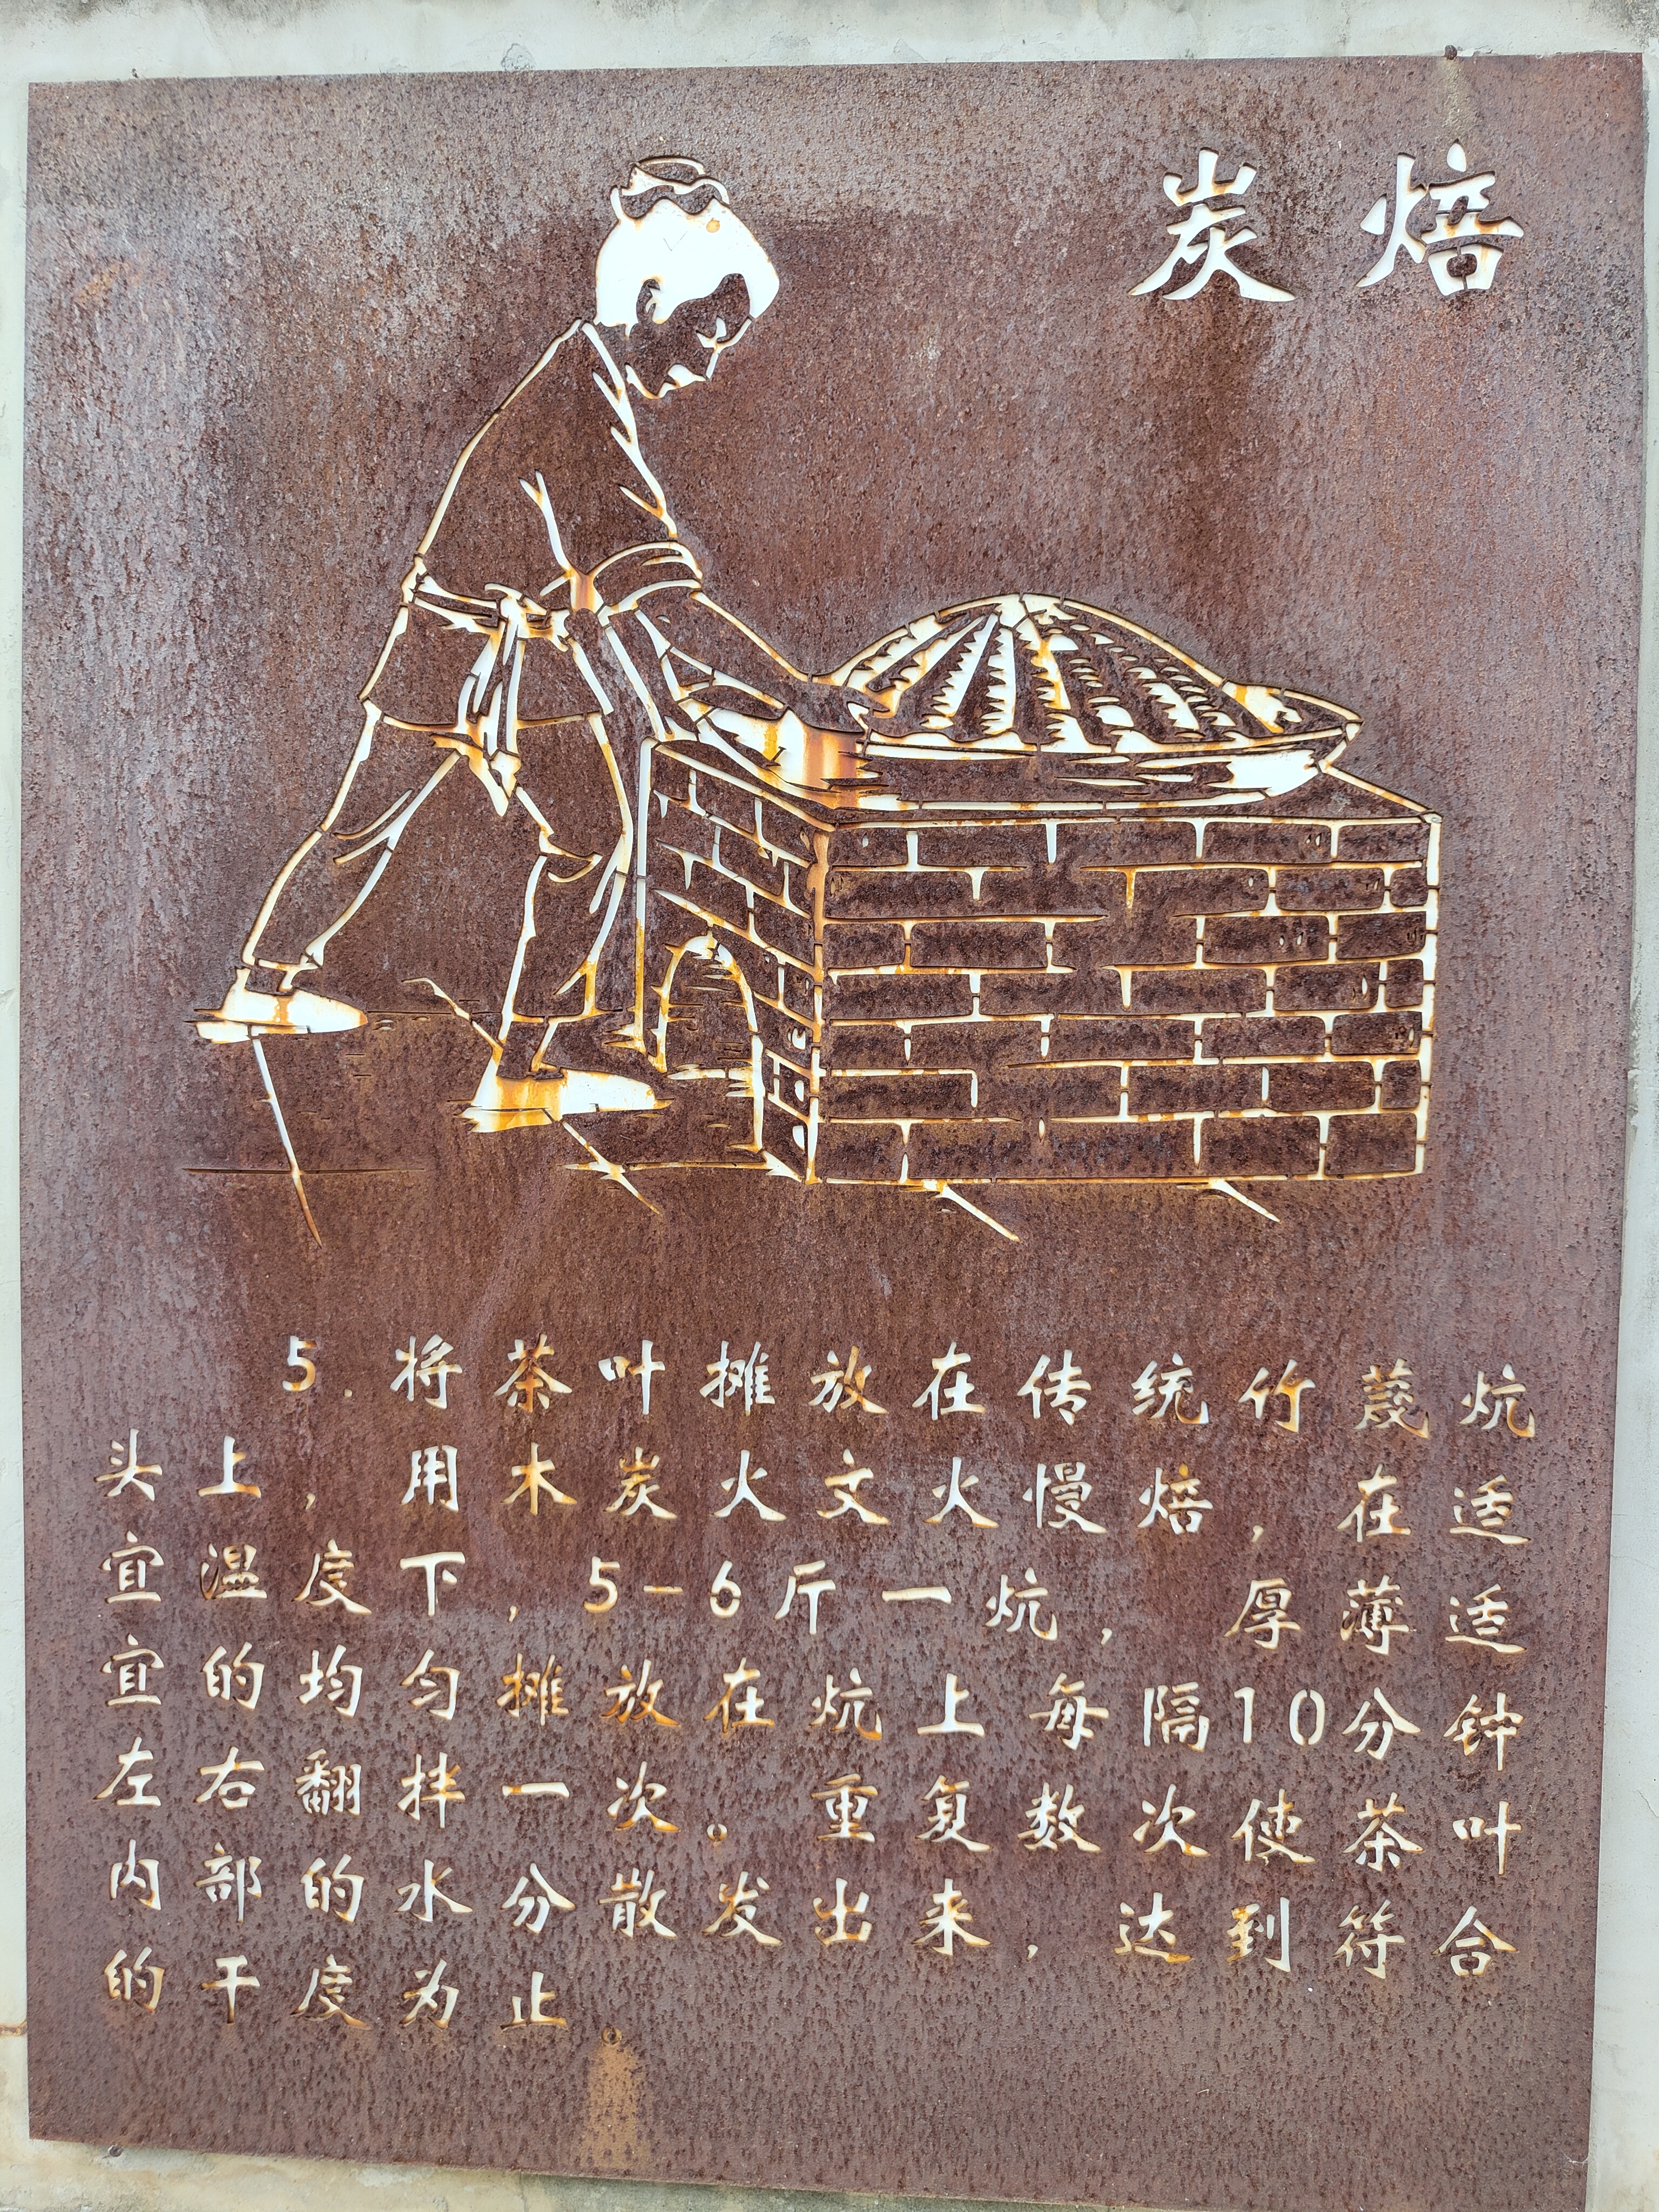 炭焙
5.将茶叶摊放在传统竹篾炕
头上,用木炭火文火慢焙,在适
宜温度下,5-6斤一炕,厚薄适
宜的均匀摊放在炕上每隔10分钟
左右翻拌一次。重复数次使茶叶
内部的水分散发出来,达到符合
的干度为止。